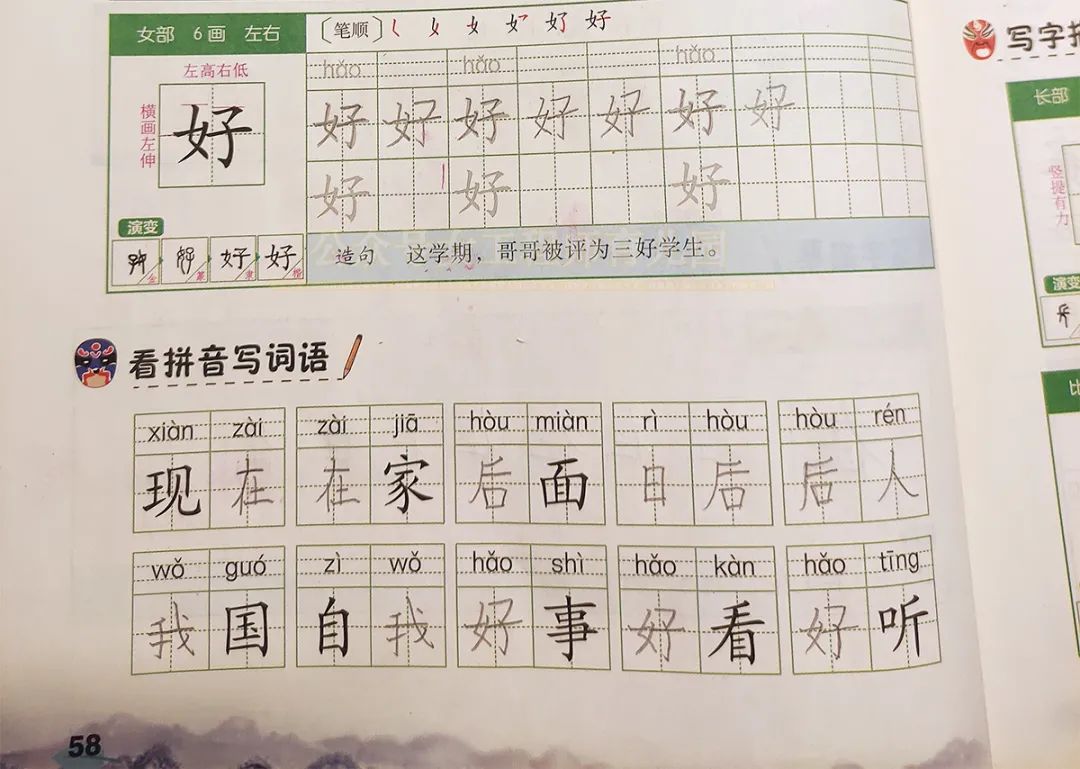 女部 6画 左右
〔笔顺〕
左高右低
横画左伸
好
hǎo hǎo hǎo
好 好 好 好 好 好 好
好 好 好
演变
好 好
造句 这学期，哥哥被评为三好学生。
看拼音写词语
xiàn zài zài jiā hòu miàn rì hòu hòu rén
现 在 在 家 后 面 日 后 后 人
wǒ guó zì wǒ hǎo shì hǎo kàn hǎo tīng
我 国 自 我 好 事 好 看 好 听
58
写字
长部
竖提有力
演变